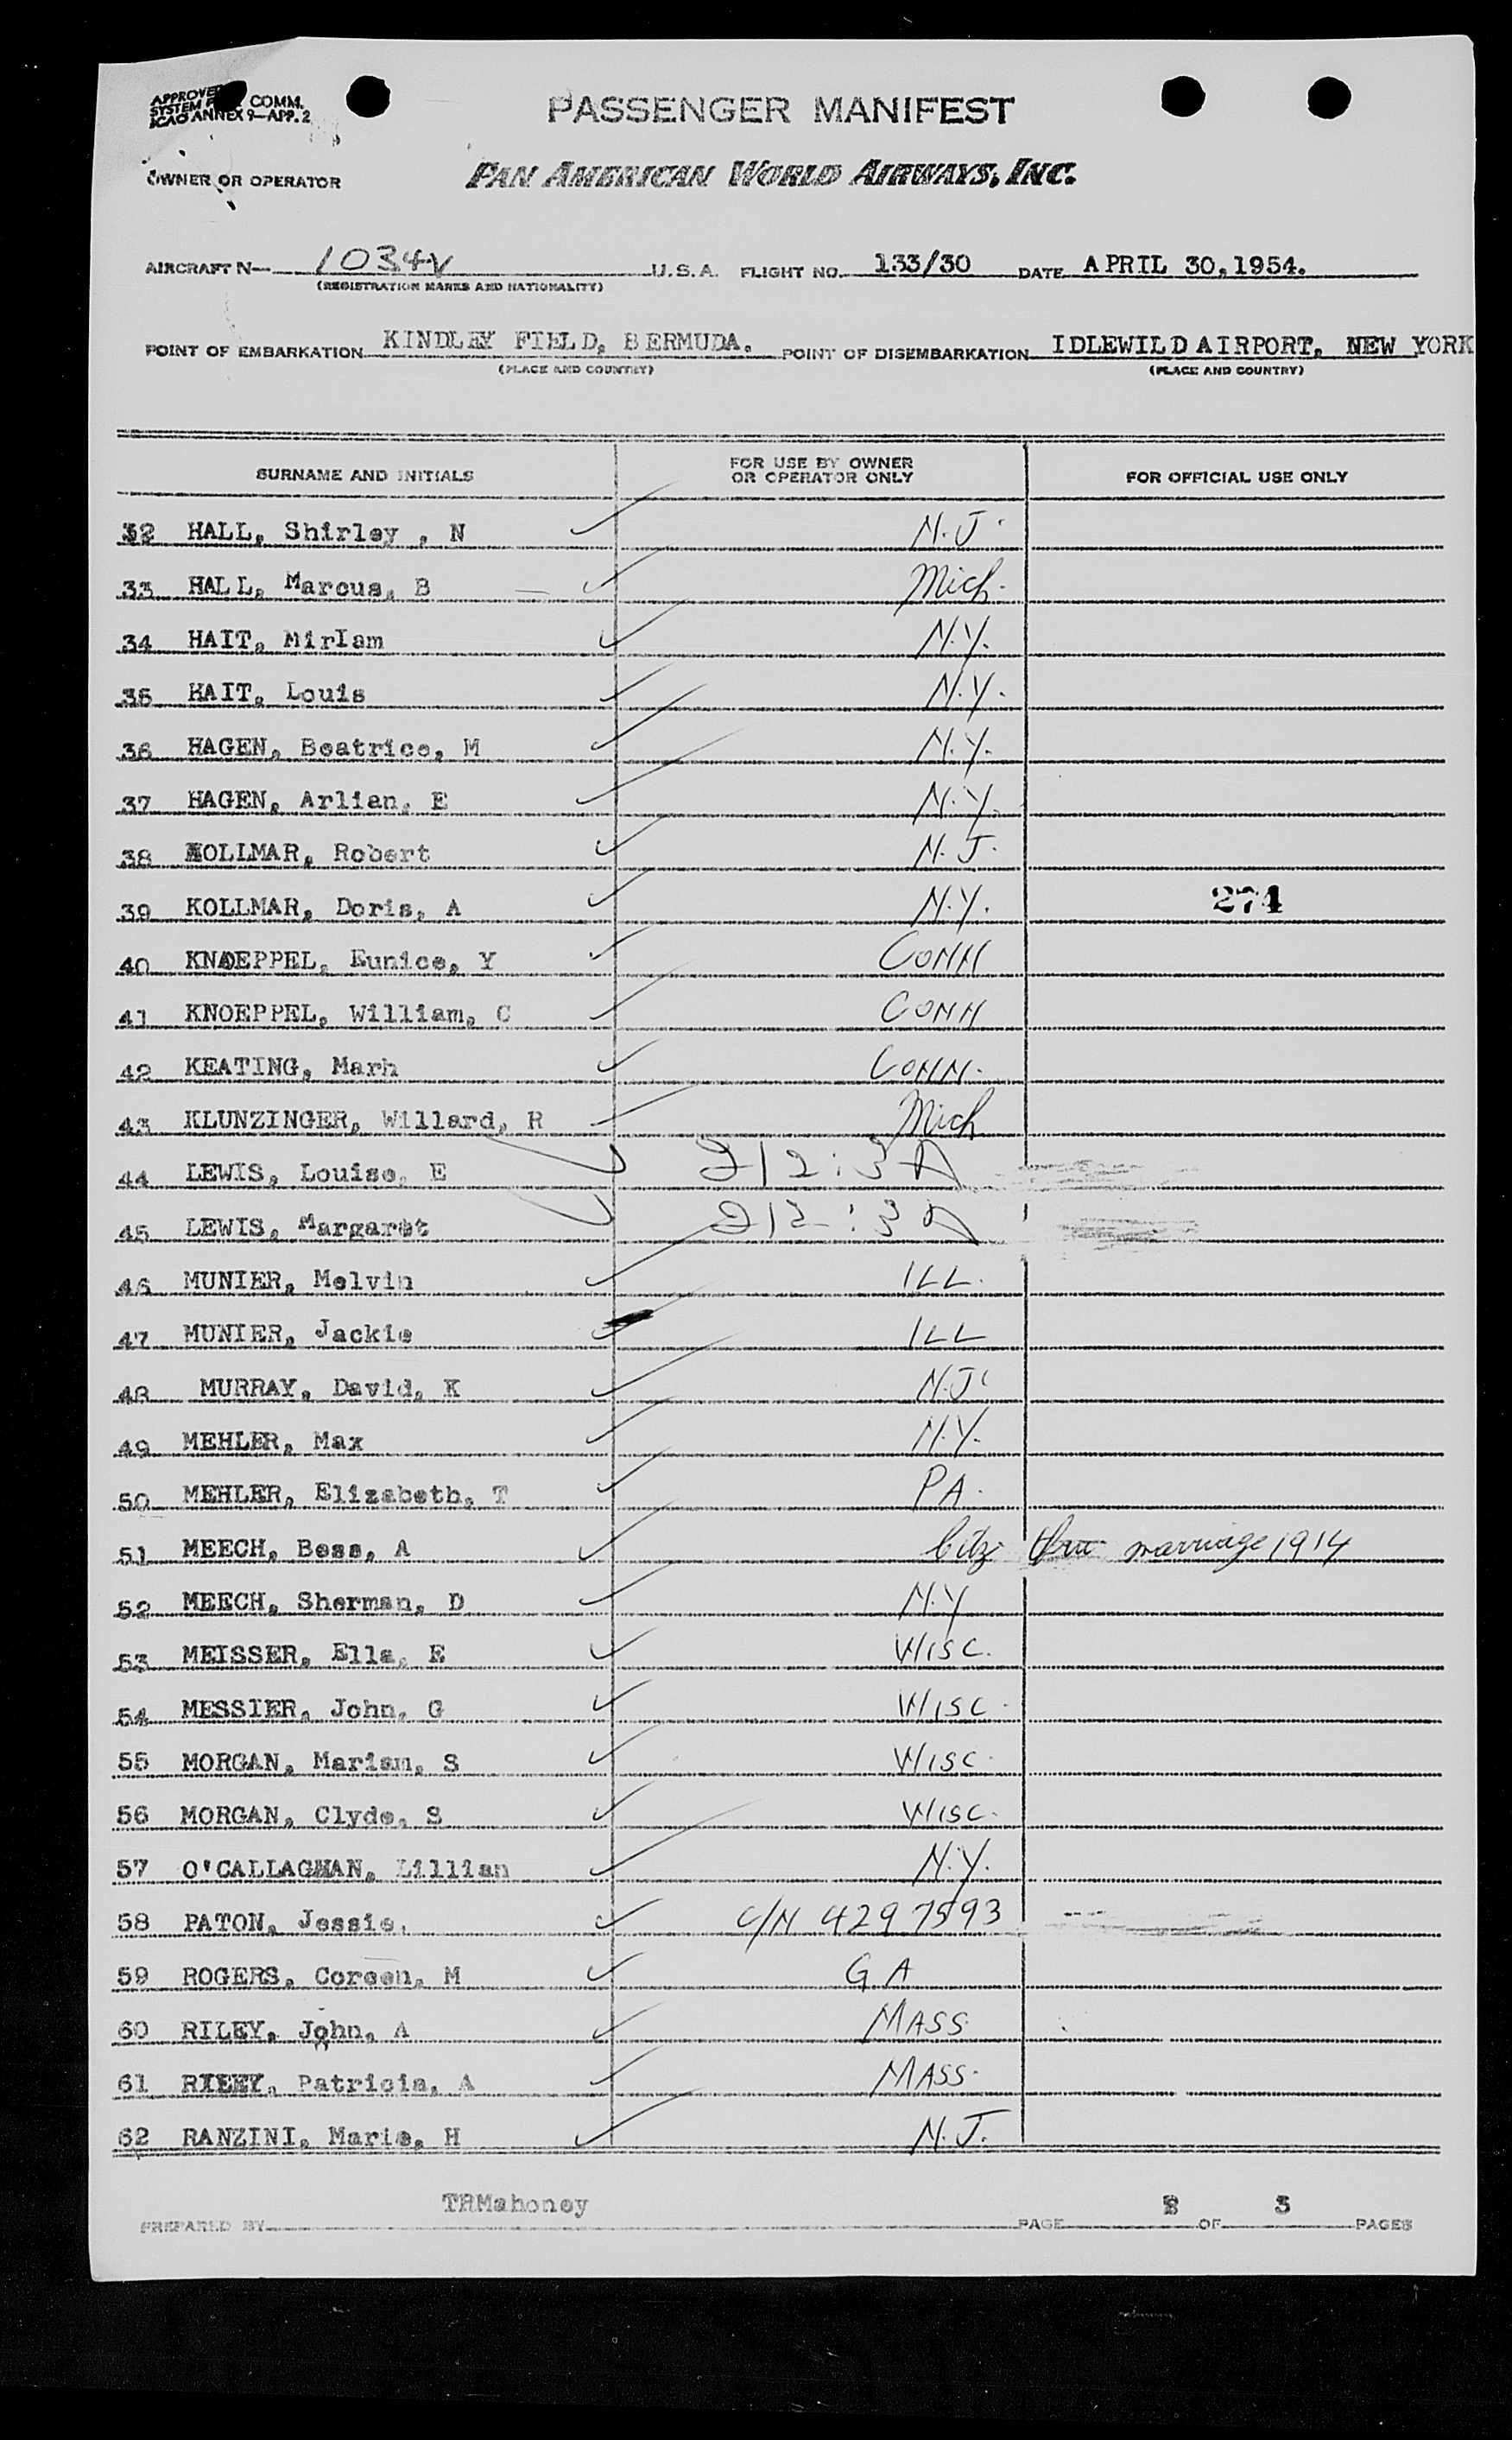 APPROVED COMM.
SYSTEM
ICAO ANNEX 9—APP. 2
PASSENGER MANIFEST
OWNER OR OPERATOR PAN AMERICAN WORLD AIRWAYS, INC.
AIRCRAFT N— 1034V U.S.A. FLIGHT NO. 133/30 DATE APRIL 30, 1954.
(REGISTRATION MARKS AND NATIONALITY)
POINT OF EMBARKATION KINDLEY FIELD, BERMUDA. POINT OF DISEMBARKATION IDLEWILD AIRPORT, NEW YORK
(PLACE AND COUNTRY) (PLACE AND COUNTRY)
SURNAME AND INITIALS FOR USE BY OWNER OR OPERATOR ONLY FOR OFFICIAL USE ONLY
32 HALL, Shirley , N N.J.
33 HALL, Marcus, B Mich.
34 HAIT, MirIam N.Y.
35 HAIT, Louis N.Y.
36 HAGEN, Beatrice, M N.Y.
37 HAGEN, Arlian, E N.Y.
38 KOLLMAR, Robert N.J.
39 KOLLMAR, Doris, A N.Y. 274
40 KNOEPPEL, Eunice, Y CONN
41 KNOEPPEL, William, C CONN
42 KEATING, Marh CONN.
43 KLUNZINGER, Willard, R Mich
44 LEWIS, Louise, E 212:3A
45 LEWIS, Margaret 212:3A
46 MUNIER, Melvin ILL.
47 MUNIER, Jackie ILL
48 MURRAY, David, K N.J.
49 MEHLER, Max N.Y.
50 MEHLER, Elizabeth, T PA.
51 MEECH, Bess, A Citz thru marriage 1914
52 MEECH, Sherman, D N.Y
53 MEISSER, Ella, E WISC.
54 MESSIER, John, G WISC.
55 MORGAN, Mariam, S WISC.
56 MORGAN, Clyde, S WISC.
57 O'CALLAGHAN, Lillian N.Y.
58 PATON, Jessie, C/N 4297593
59 ROGERS, Coreen, M GA
60 RILEY, John, A MASS
61 RILEY, Patricia, A MASS.
62 RANZINI, Marie, H N.J.
PREPARED BY TRMahoney PAGE 2 OF 3 PAGES